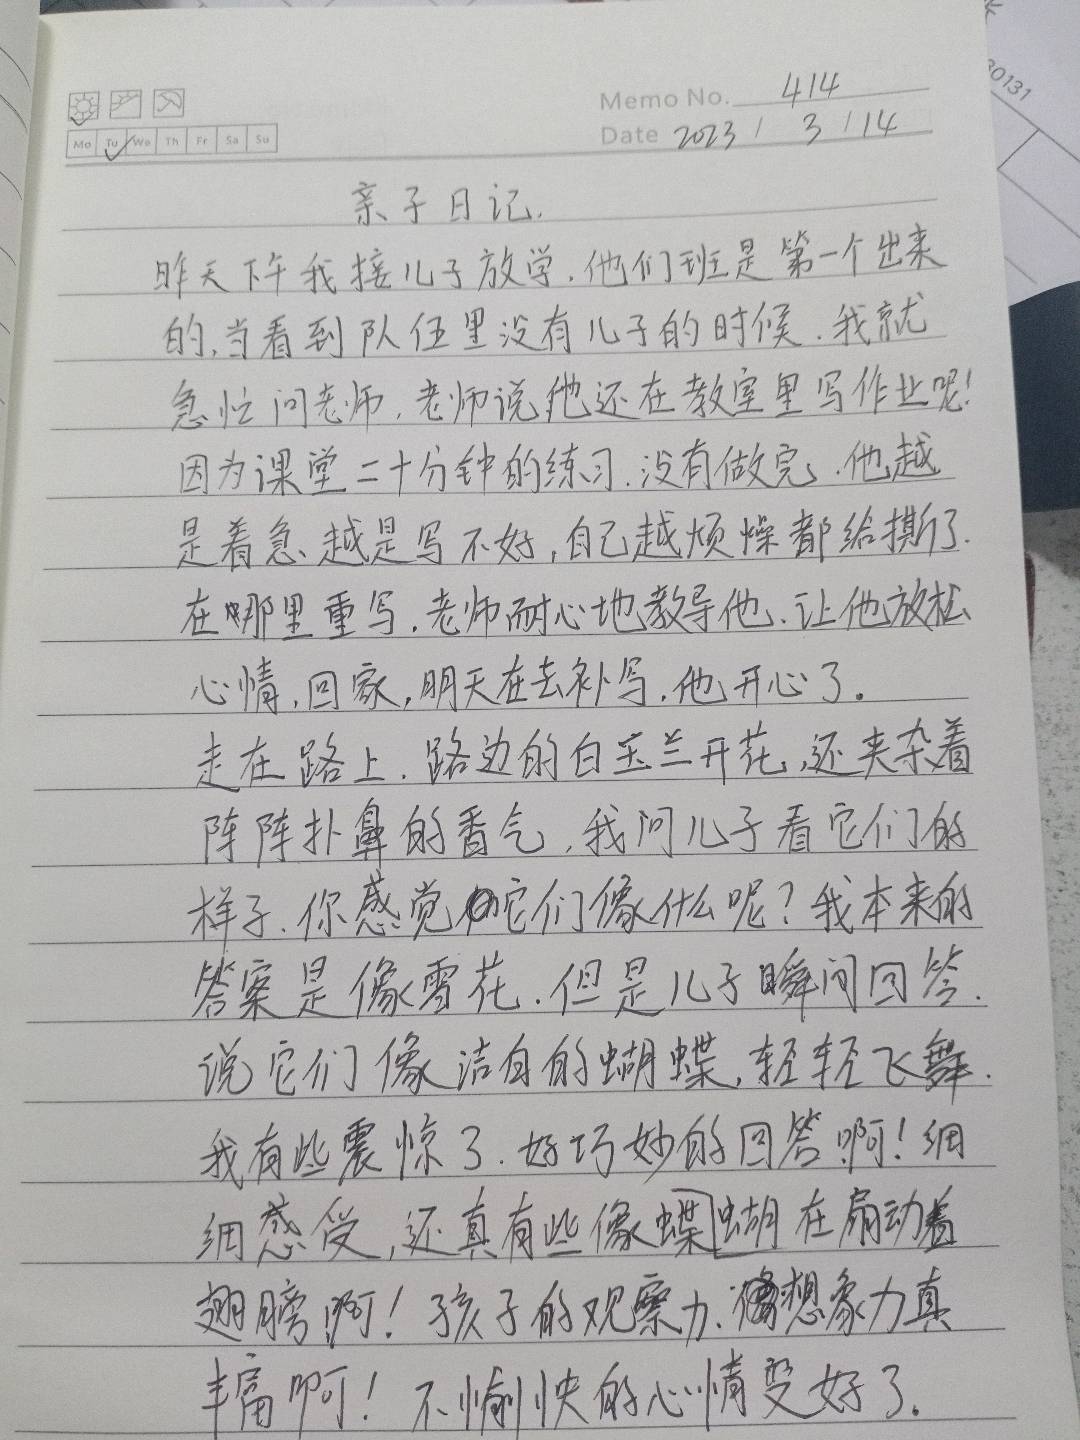 30131
Memo No. 414
Mo Tu We Th Fr Sa Su
Date 2023 / 3 / 14
亲子日记.
昨天下午我接儿子放学.他们班是第一个出来
的,当看到队伍里没有儿子的时候.我就
急忙问老师,老师说他还在教室里写作业呢!
因为课堂二十分钟的练习.没有做完.他越
是着急越是写不好,自己越烦燥都给撕了.
在哪里重写.老师耐心地教导他.让他放松
心情,回家,明天在去补写.他开心了。
走在路上.路边的白玉兰开花,还夹杂着
阵阵扑鼻的香气,我问儿子看它们的
样子.你感觉它们像什么呢?我本来的
答案是像雪花.但是儿子瞬间回答.
说它们像洁白的蝴蝶,轻轻飞舞.
我有些震惊了.好巧妙的回答啊!细
细感受,还真有些像蝶蝴在扇动着
翅膀啊!孩子的观察力.想象力真
丰富啊!不愉快的心情变好了。